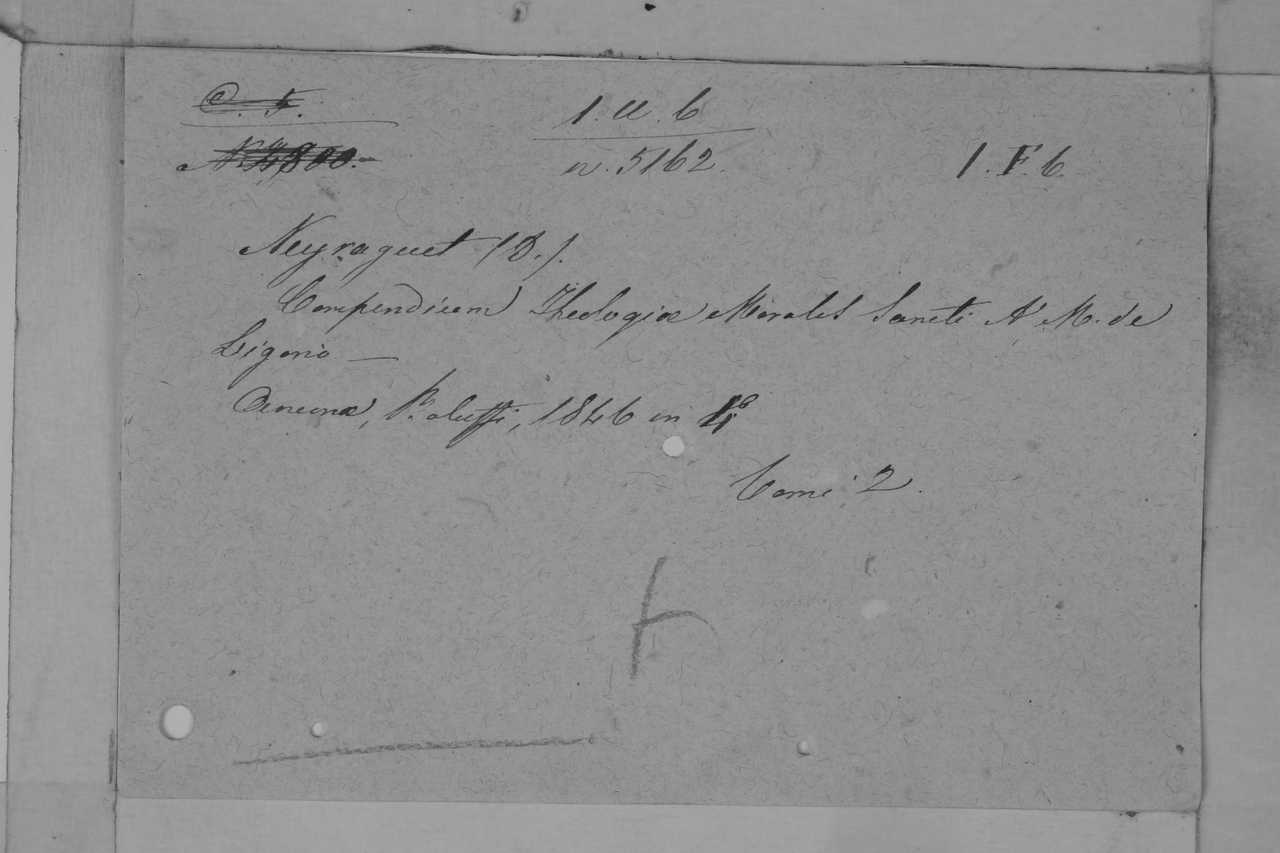 C. F.
N. 4300.
1. U. 6
n. 5162.
1. F. 6
Neyraguet (D.).
Compendium Theologiæ Moralis Sancti A. M. de
Ligorio —
Anconæ, Baluffi, 1846 in 4°
Tomi 2.